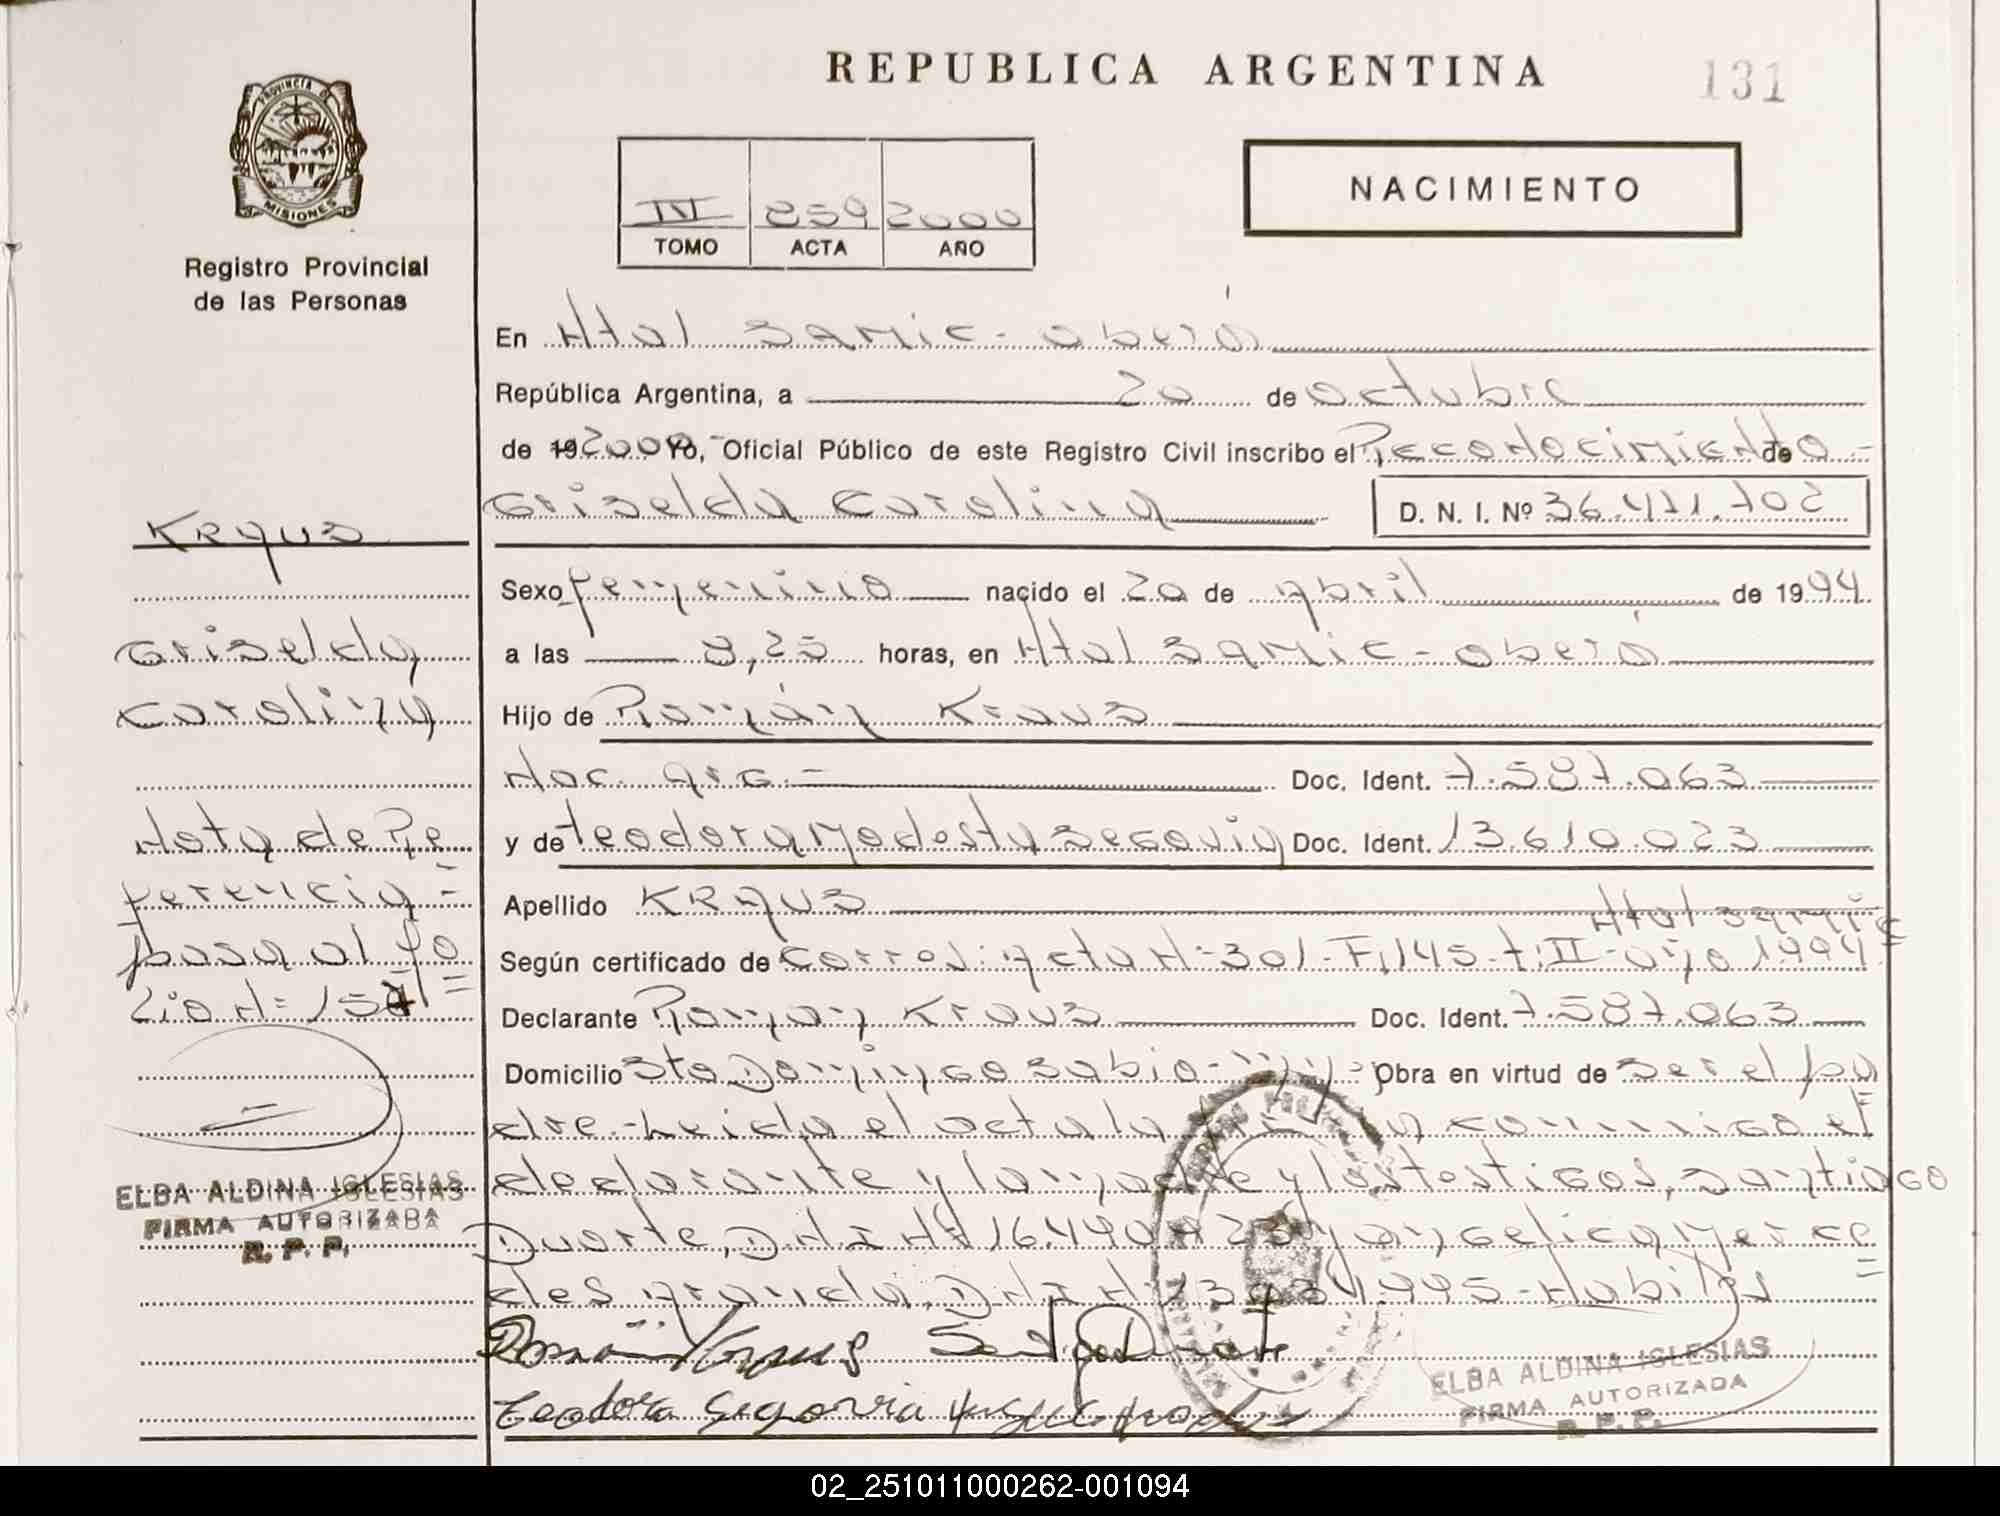 REPUBLICA ARGENTINA
131
PROVINCIA DE
MISIONES
Registro Provincial
de las Personas
III 859 2000
TOMO ACTA AÑO
NACIMIENTO
En Htal Samic - Oberá
República Argentina, a 20 de Octubre
de 19 2000 Yo, Oficial Público de este Registro Civil inscribo el Reconocimiento de
Griselda Carolina D. N. I. Nº 36.411.702
Kraus
Sexo femenino nacido el 20 de Abril de 1994
Griselda
a las 8,25 horas, en Htal Samic - Oberá
Carolina
Hijo de Román Kraus
Nac. Arg.- Doc. Ident. 7.587.063
Nota de Re
y de teodora Modesta Segovia Doc. Ident. 13.610.023
ferencia =
Apellido KRAUS
Htal Samic
pasa al fo
Según certificado de Corres: Acta N=301-F,145-t:II-año 1994
lio N= 157
Declarante Roman Kraus Doc. Ident. 7.587.063
Domicilio Sto Domingo Sabio- Obra en virtud de ser el pa
dre.-Leida el acta la conmigo el
declarante y la madre y los testigos, Santiago
ELBA ALDINA IGLESIAS
FIRMA AUTORIZADA
R. P. P.
Duarte, D.N.I Nº 16.440. y Angelica Merce
des Aranda, D.N.I N= 445-Habiles
Román Kraus Santiago Duarte
Teodora Segovia
ELBA ALDINA IGLESIAS
FIRMA AUTORIZADA
R. P. P.
02_251011000262-001094